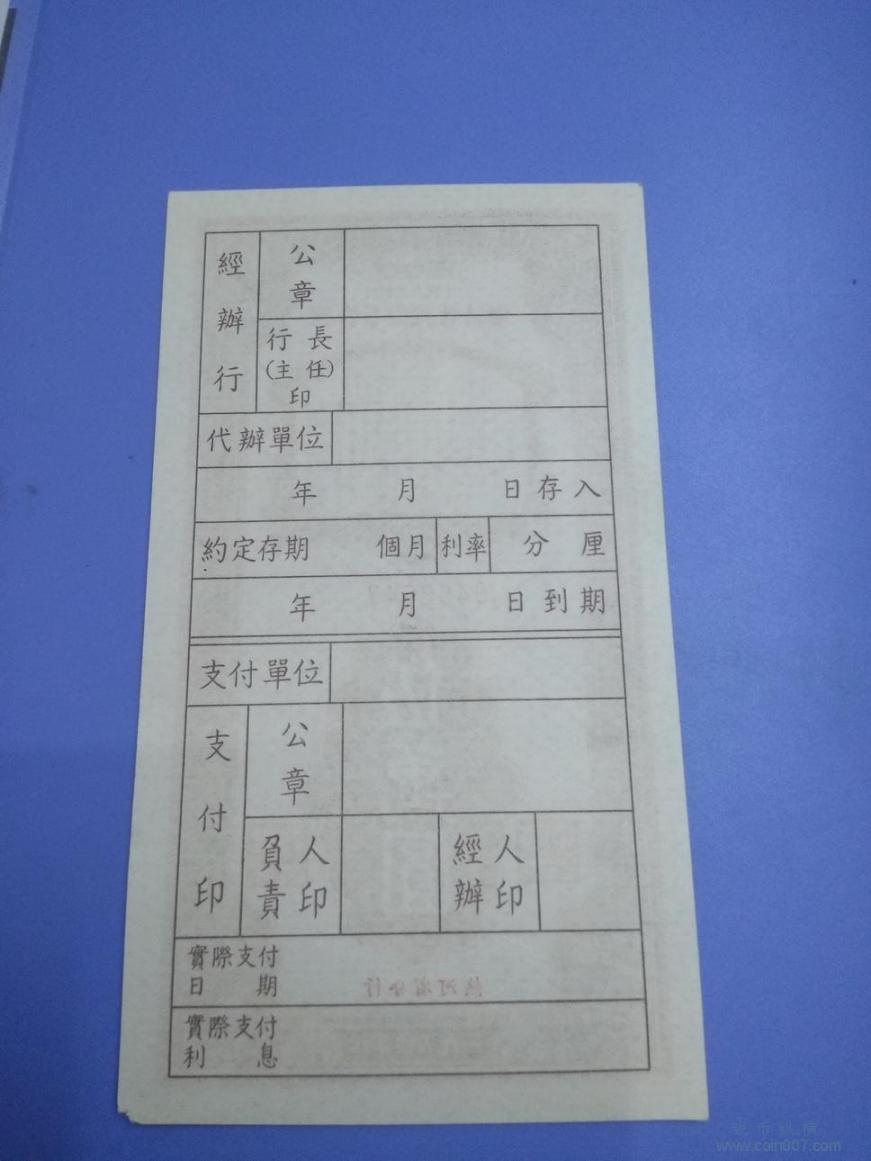 經辦行
公章
行長
(主任)
印
代辦單位
年 月 日存入
約定存期 個月 利率 分 厘
年 月 日到期
支付單位
支付印
公章
負責人印
經辦人印
實際支付
日期
熱河省分行
實際支付
利息
www.coin007.com